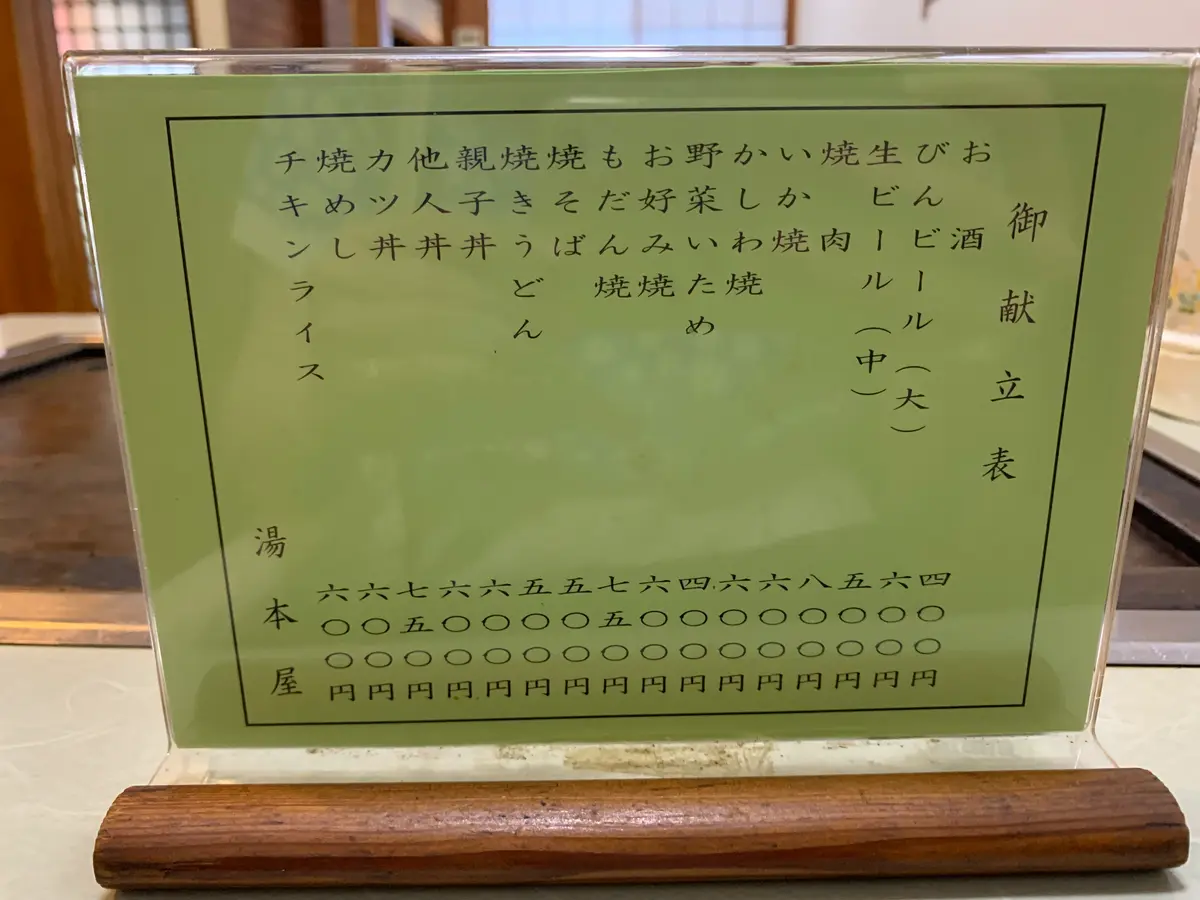 御献立表
お酒 四〇〇円
びんビール（大） 六〇〇円
生ビール（中） 五〇〇円
焼肉 八〇〇円
いか焼 六〇〇円
かしわ焼 六〇〇円
野菜いため 四〇〇円
お好み焼 六〇〇円
もだん焼 七五〇円
焼そば 五〇〇円
焼きうどん 五〇〇円
親子丼 六〇〇円
他人丼 六〇〇円
カツ丼 七五〇円
焼めし 六〇〇円
チキンライス 六〇〇円
湯本屋